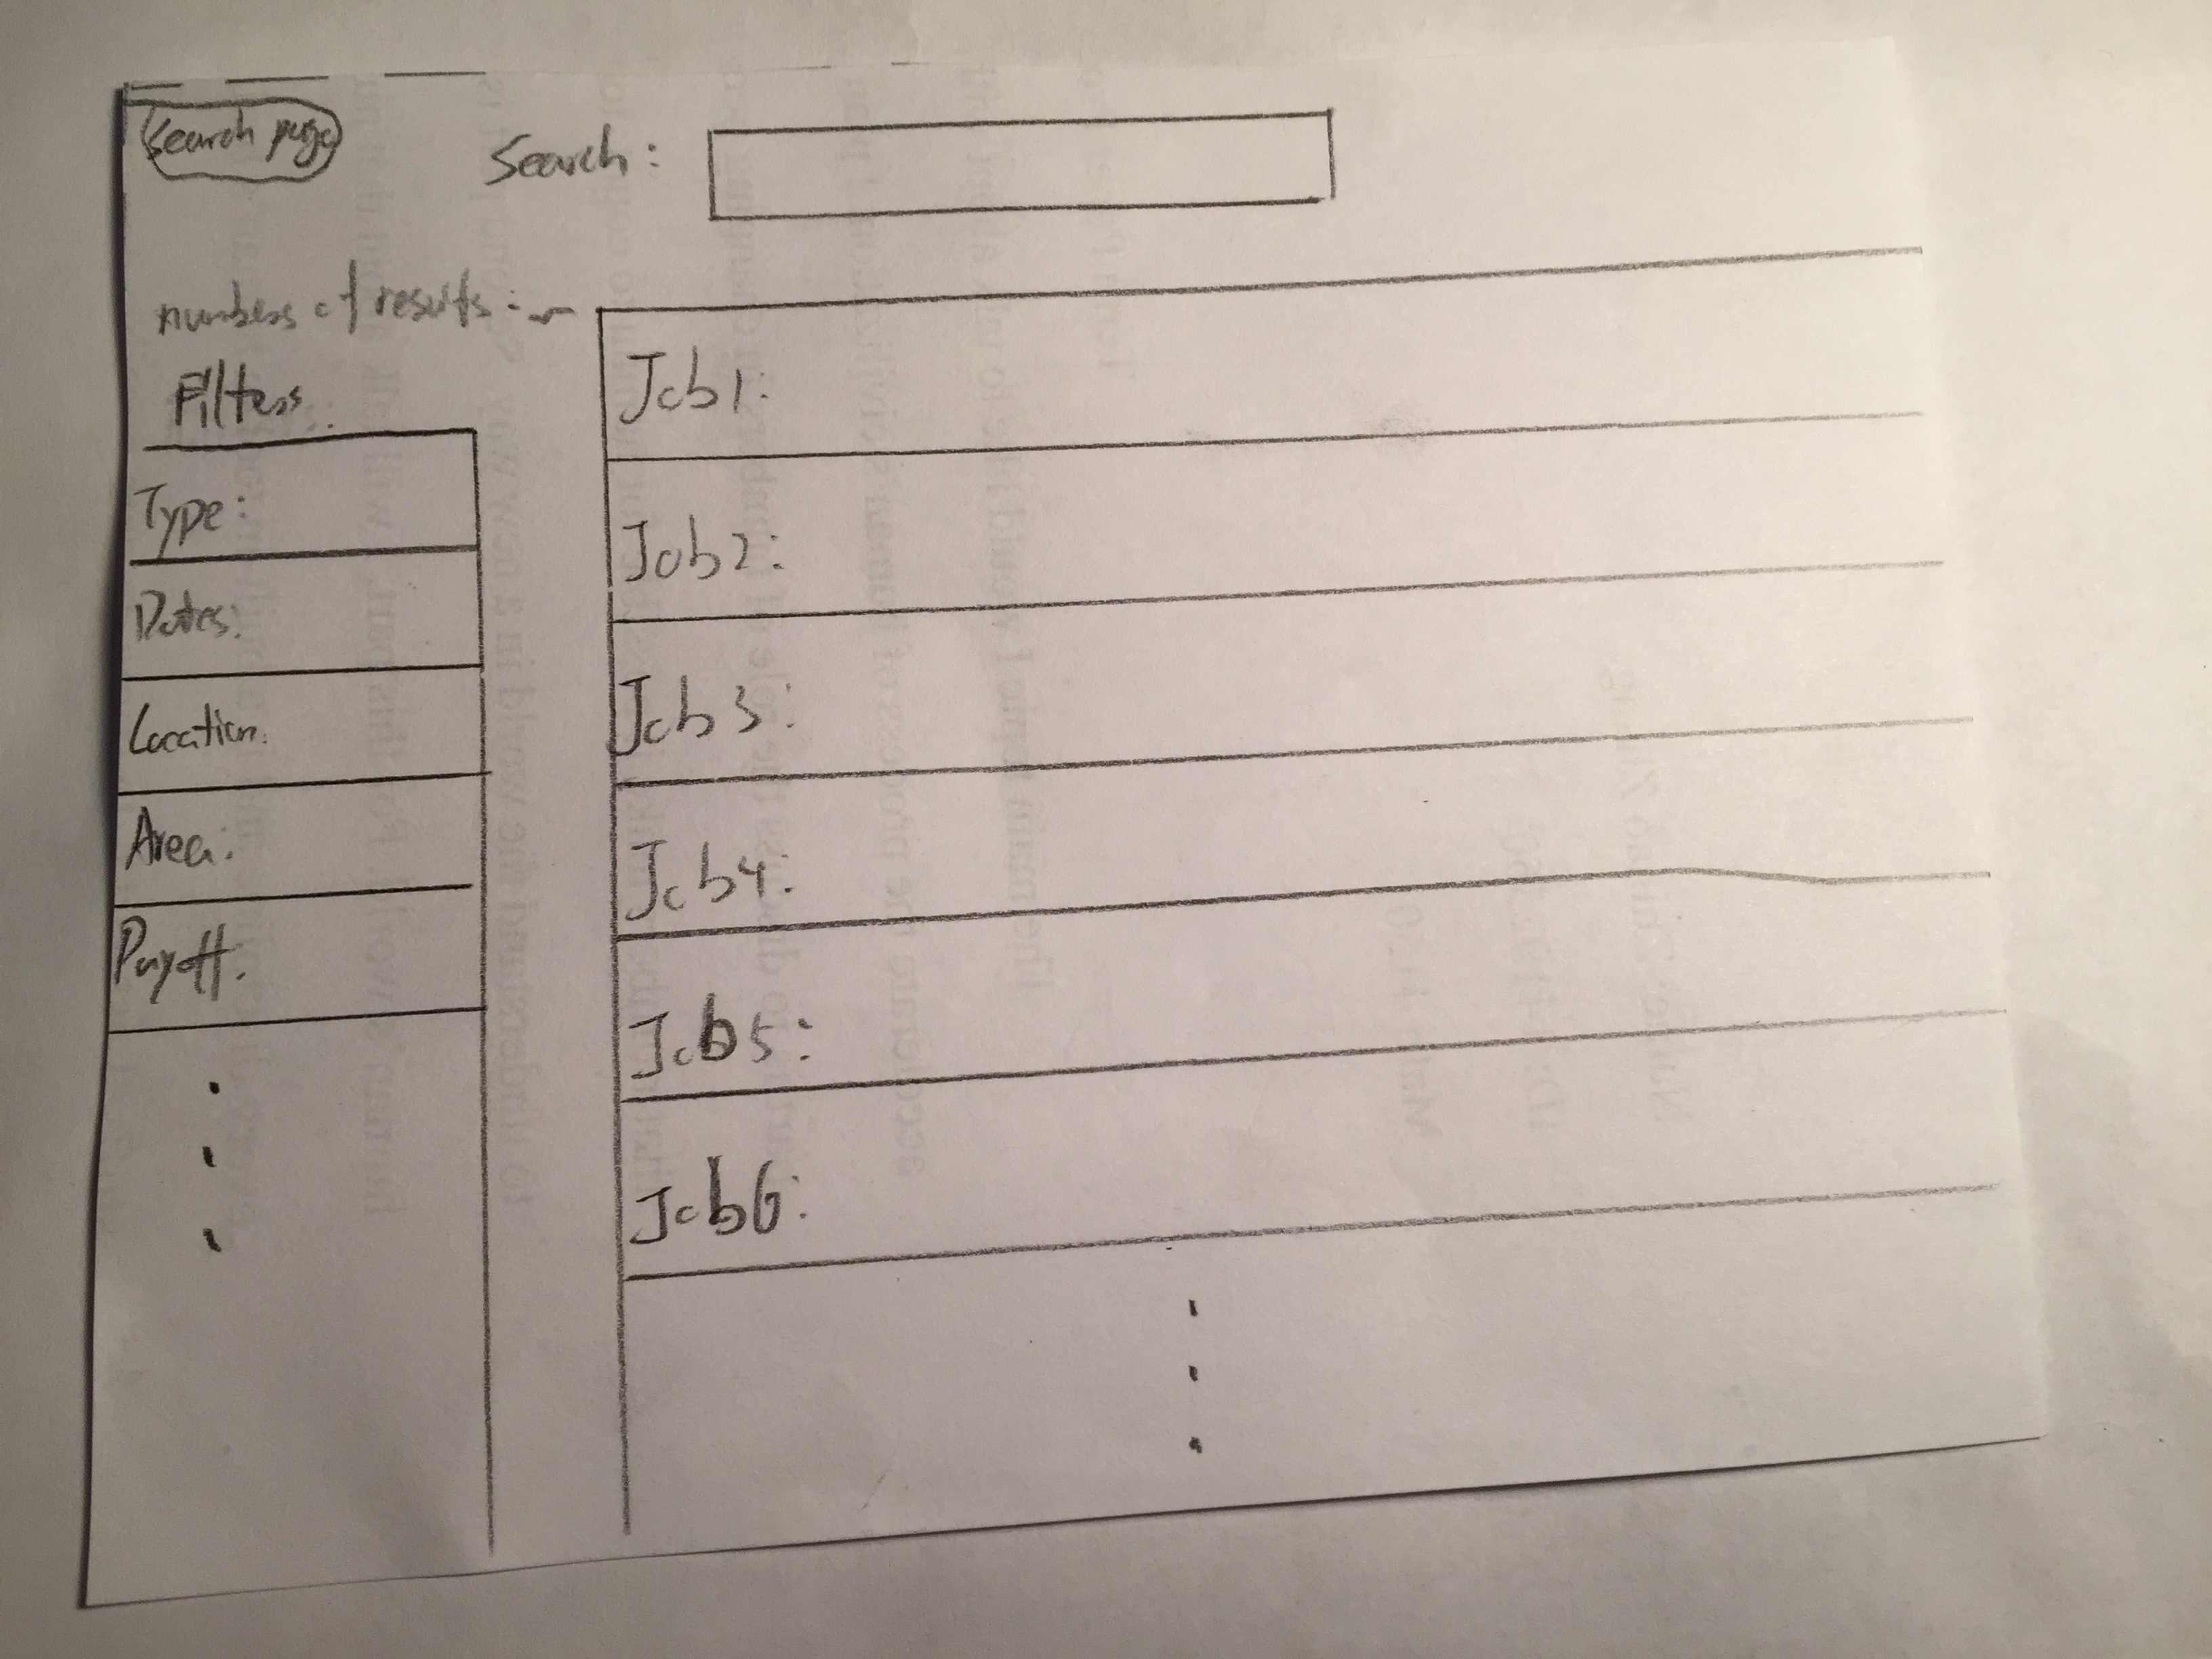 Search page
Search:
numbers of results:
Filters
Type:
Dates:
Location:
Area:
Payoff:
Job1:
Job2:
Job3:
Job4:
Job5:
Job6: